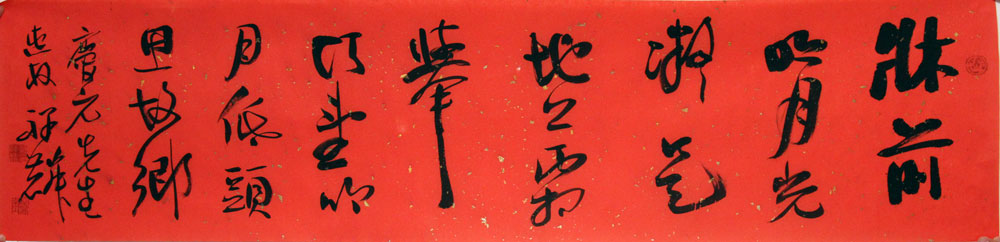 牀前
明月光
疑是
地上霜
舉
頭望明
月低頭
思故鄉
慶元先生